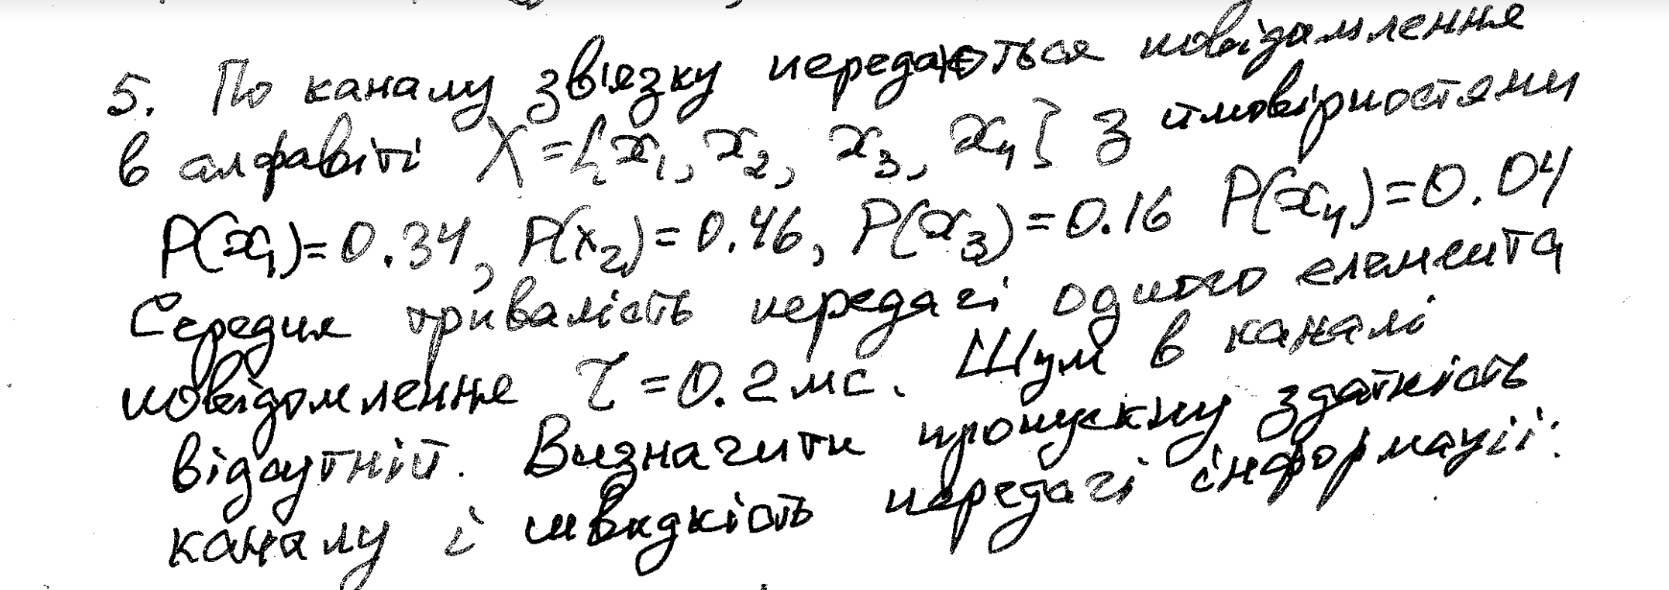 5. По каналу зв'язку передаються повідомлення
в алфавіті X={x₁, x₂, x₃, x₄} з ймовірностями
P(x₁)=0.34, P(x₂)=0.46, P(x₃)=0.16 P(x₄)=0.04
Середня тривалість передачі одного елемента
повідомлення τ=0.2мс. Шум в каналі
відсутній. Визначити пропускну здатність
каналу і швидкість передачі інформації.